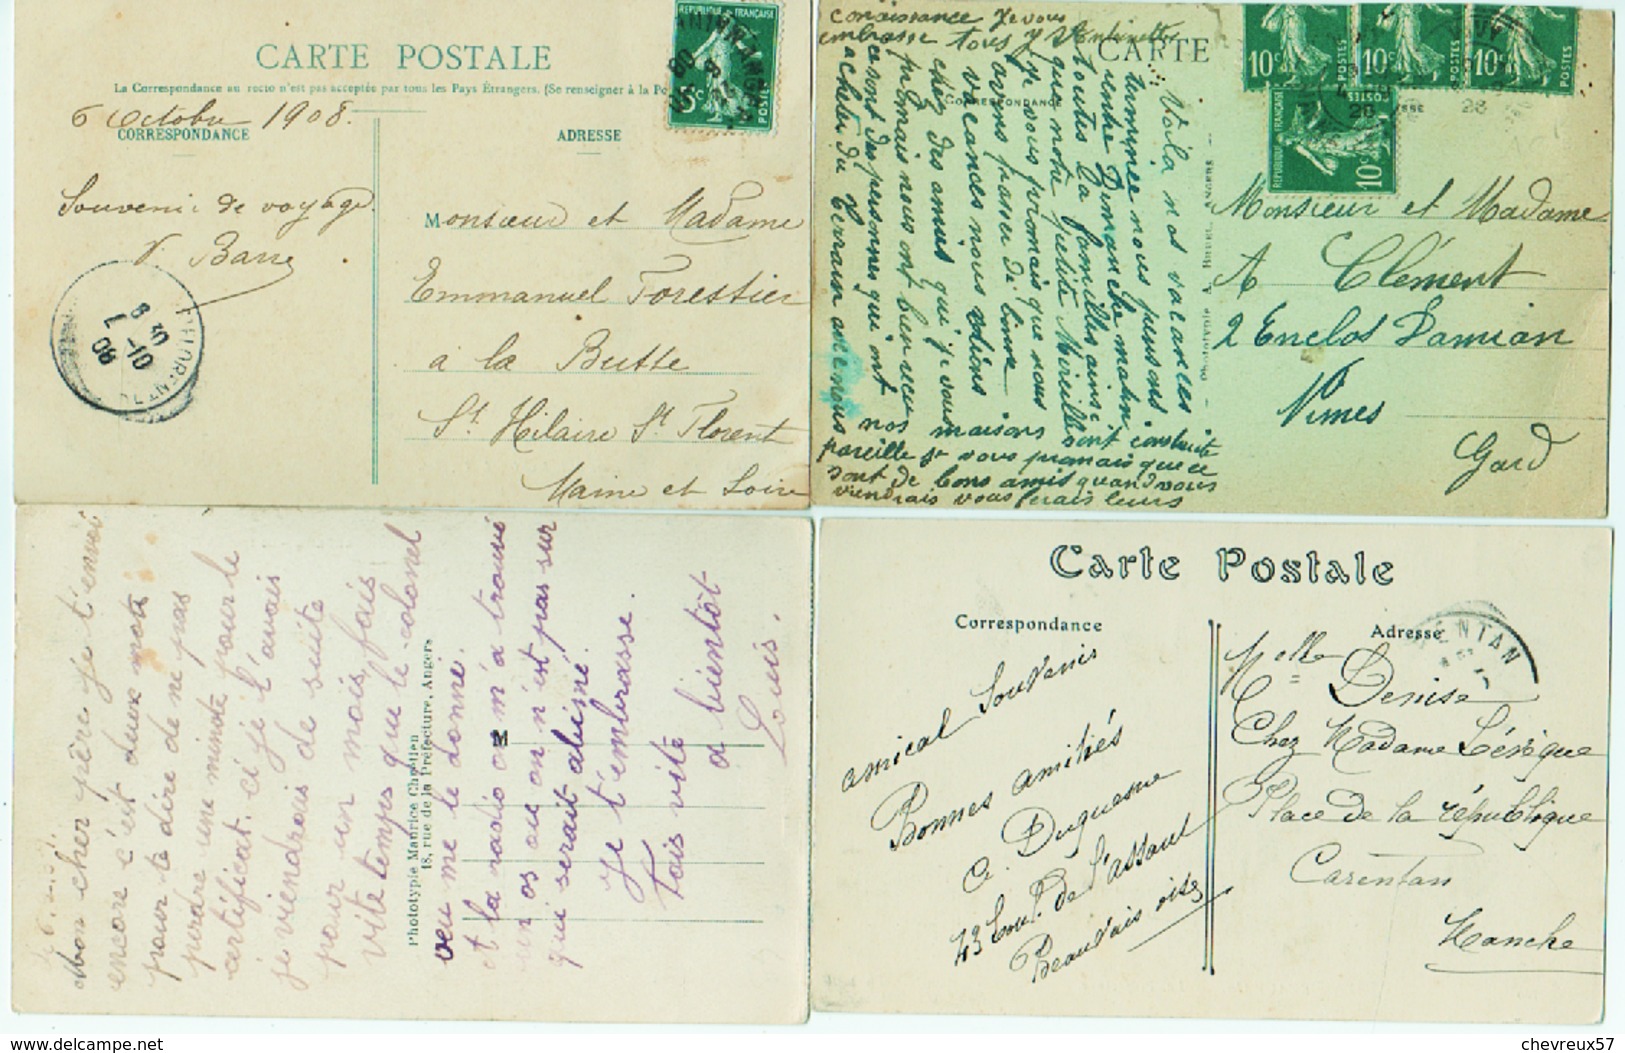 CARTE POSTALE
La Correspondance au recto n'est pas acceptée par tous les Pays Étrangers. (Se renseigner à la Po
6 Octobre 1908.
CORRESPONDANCE
ADRESSE
Souvenir de voyage.
V. Barre
Monsieur et Madame
Emmanuel Forestier
à la Butte
St Hilaire St Florent
Maine et Loire
8 30
7 -10
08
REPUBLIQUE FRANÇAISE
5c
POSTES
connaissance Je vous
embrasse tous
CARTE
CORRESPONDANCE
Voila nos vacances
terminée nous pensons
rentre Dimanche matin
toutes la famille ainsi
que notre petite Mireille
Je vous promais que nous
avons passer de bonne
vacances nous étions
chez des amies qui je vous
promais nous ont bien reçu
ce sont des personnes qui ont
acheter du terrain avec nous
nos maisons sont construite
pareille je vous promais que ce
sont de bons amis quand vous
viendrais vous ferais leurs
10c POSTES
10c POSTES
10c POSTES
REPUBLIQUE FRANÇAISE
10c
POSTES
Monsieur et Madame
A Clément
2 Enclos Damian
Nimes
Gard
Mon cher père je t'envoi
encore c'est deux mots
pour te dire de ne pas
perdre une minute pour le
certificat. ci je l'avais
je viendrais de suite
pour un mois, fais
vite temps que le colonel
veu me le donné.
et la radio on m'a trouvé
un os ou on n'est pas sur
qui serait abimé.
Je t'embrasse.
Fais vite
a bientôt
Louis.
Phototypie Maurice Chrétien
18, rue de la Préfecture, Angers
Carte Postale
Correspondance
Adresse
ENTAN
amical Souvenir
Bonnes amitiés
C. Duquesne
Beauvais oise
Melle Denise
Chez Madame Lévêque
Place de la république
Carentan
Manche
delcampe.net
chevreux57